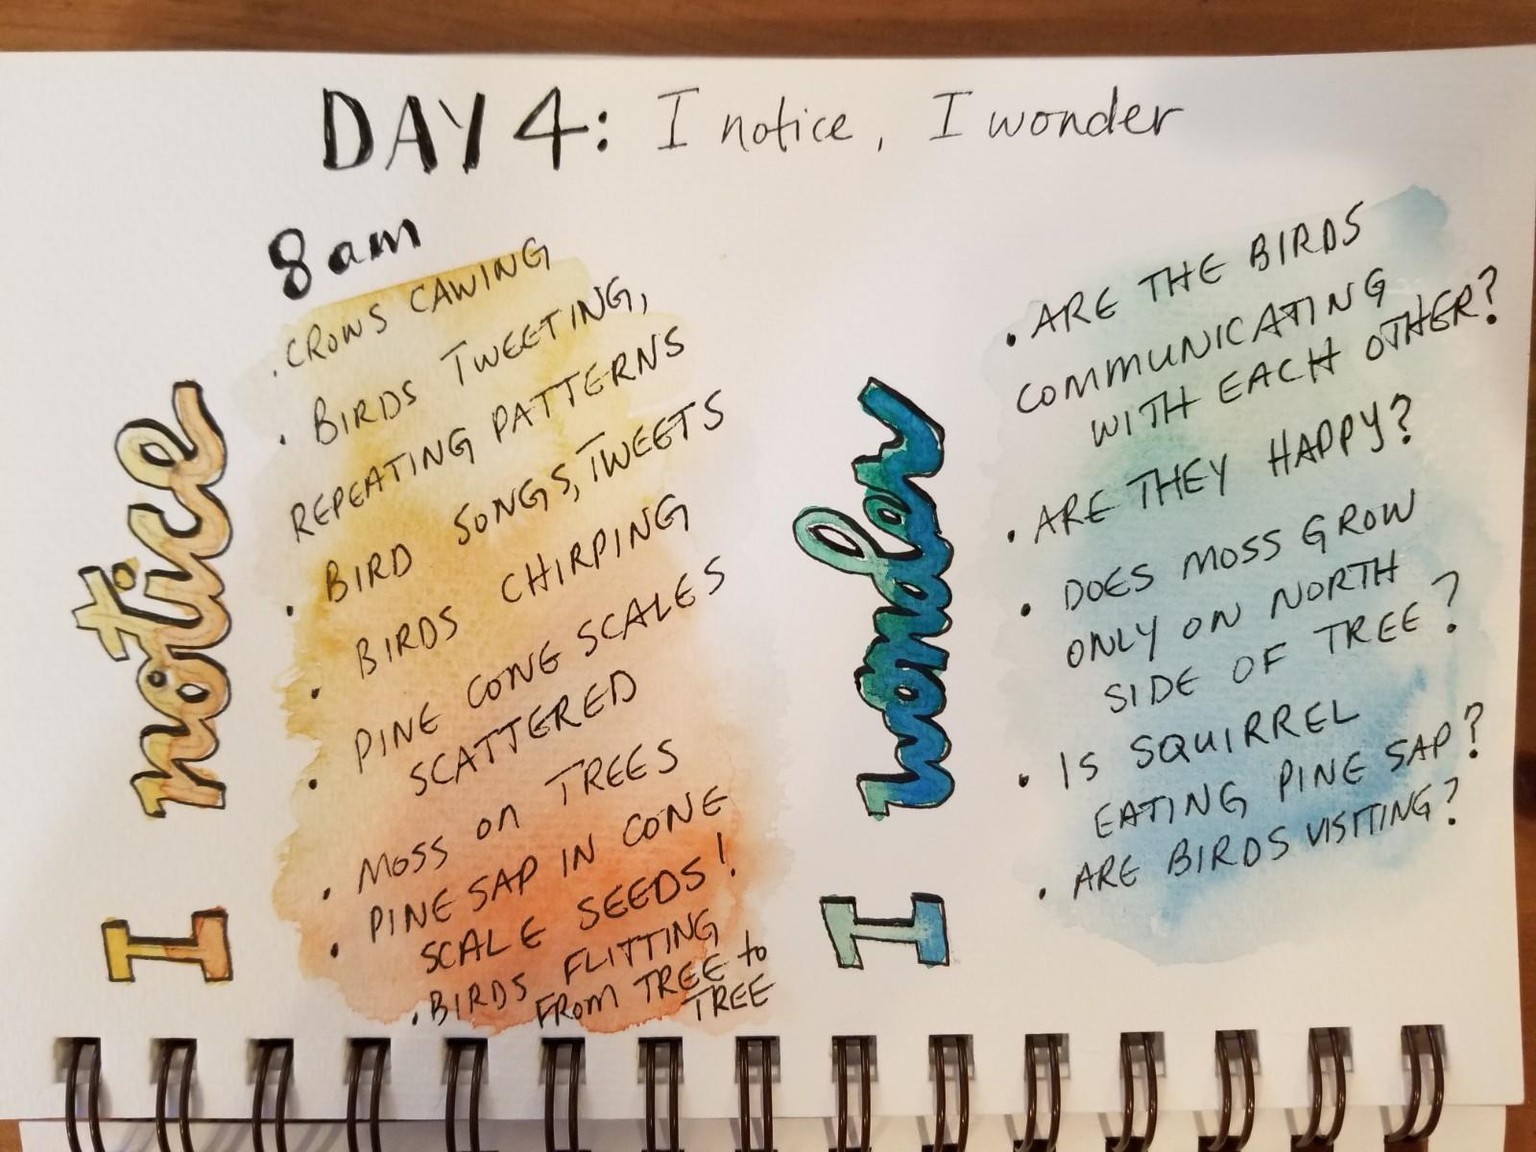 DAY 4: I notice, I wonder
8am
I notice
. CROWS CAWING
. BIRDS TWEETING,
REPEATING PATTERNS
. BIRD SONGS, TWEETS
. BIRDS CHIRPING
. PINE CONE SCALES
SCATTERED
. MOSS on TREES
. PINE SAP IN CONE
SCALE SEEDS!
. BIRDS FLITTING
FROM TREE to
TREE
I wonder
. ARE THE BIRDS
COMMUNICATING
WITH EACH OTHER?
. ARE THEY HAPPY?
. DOES MOSS GROW
ONLY ON NORTH
SIDE OF TREE?
. IS SQUIRREL
EATING PINE SAP?
. ARE BIRDS VISITING?